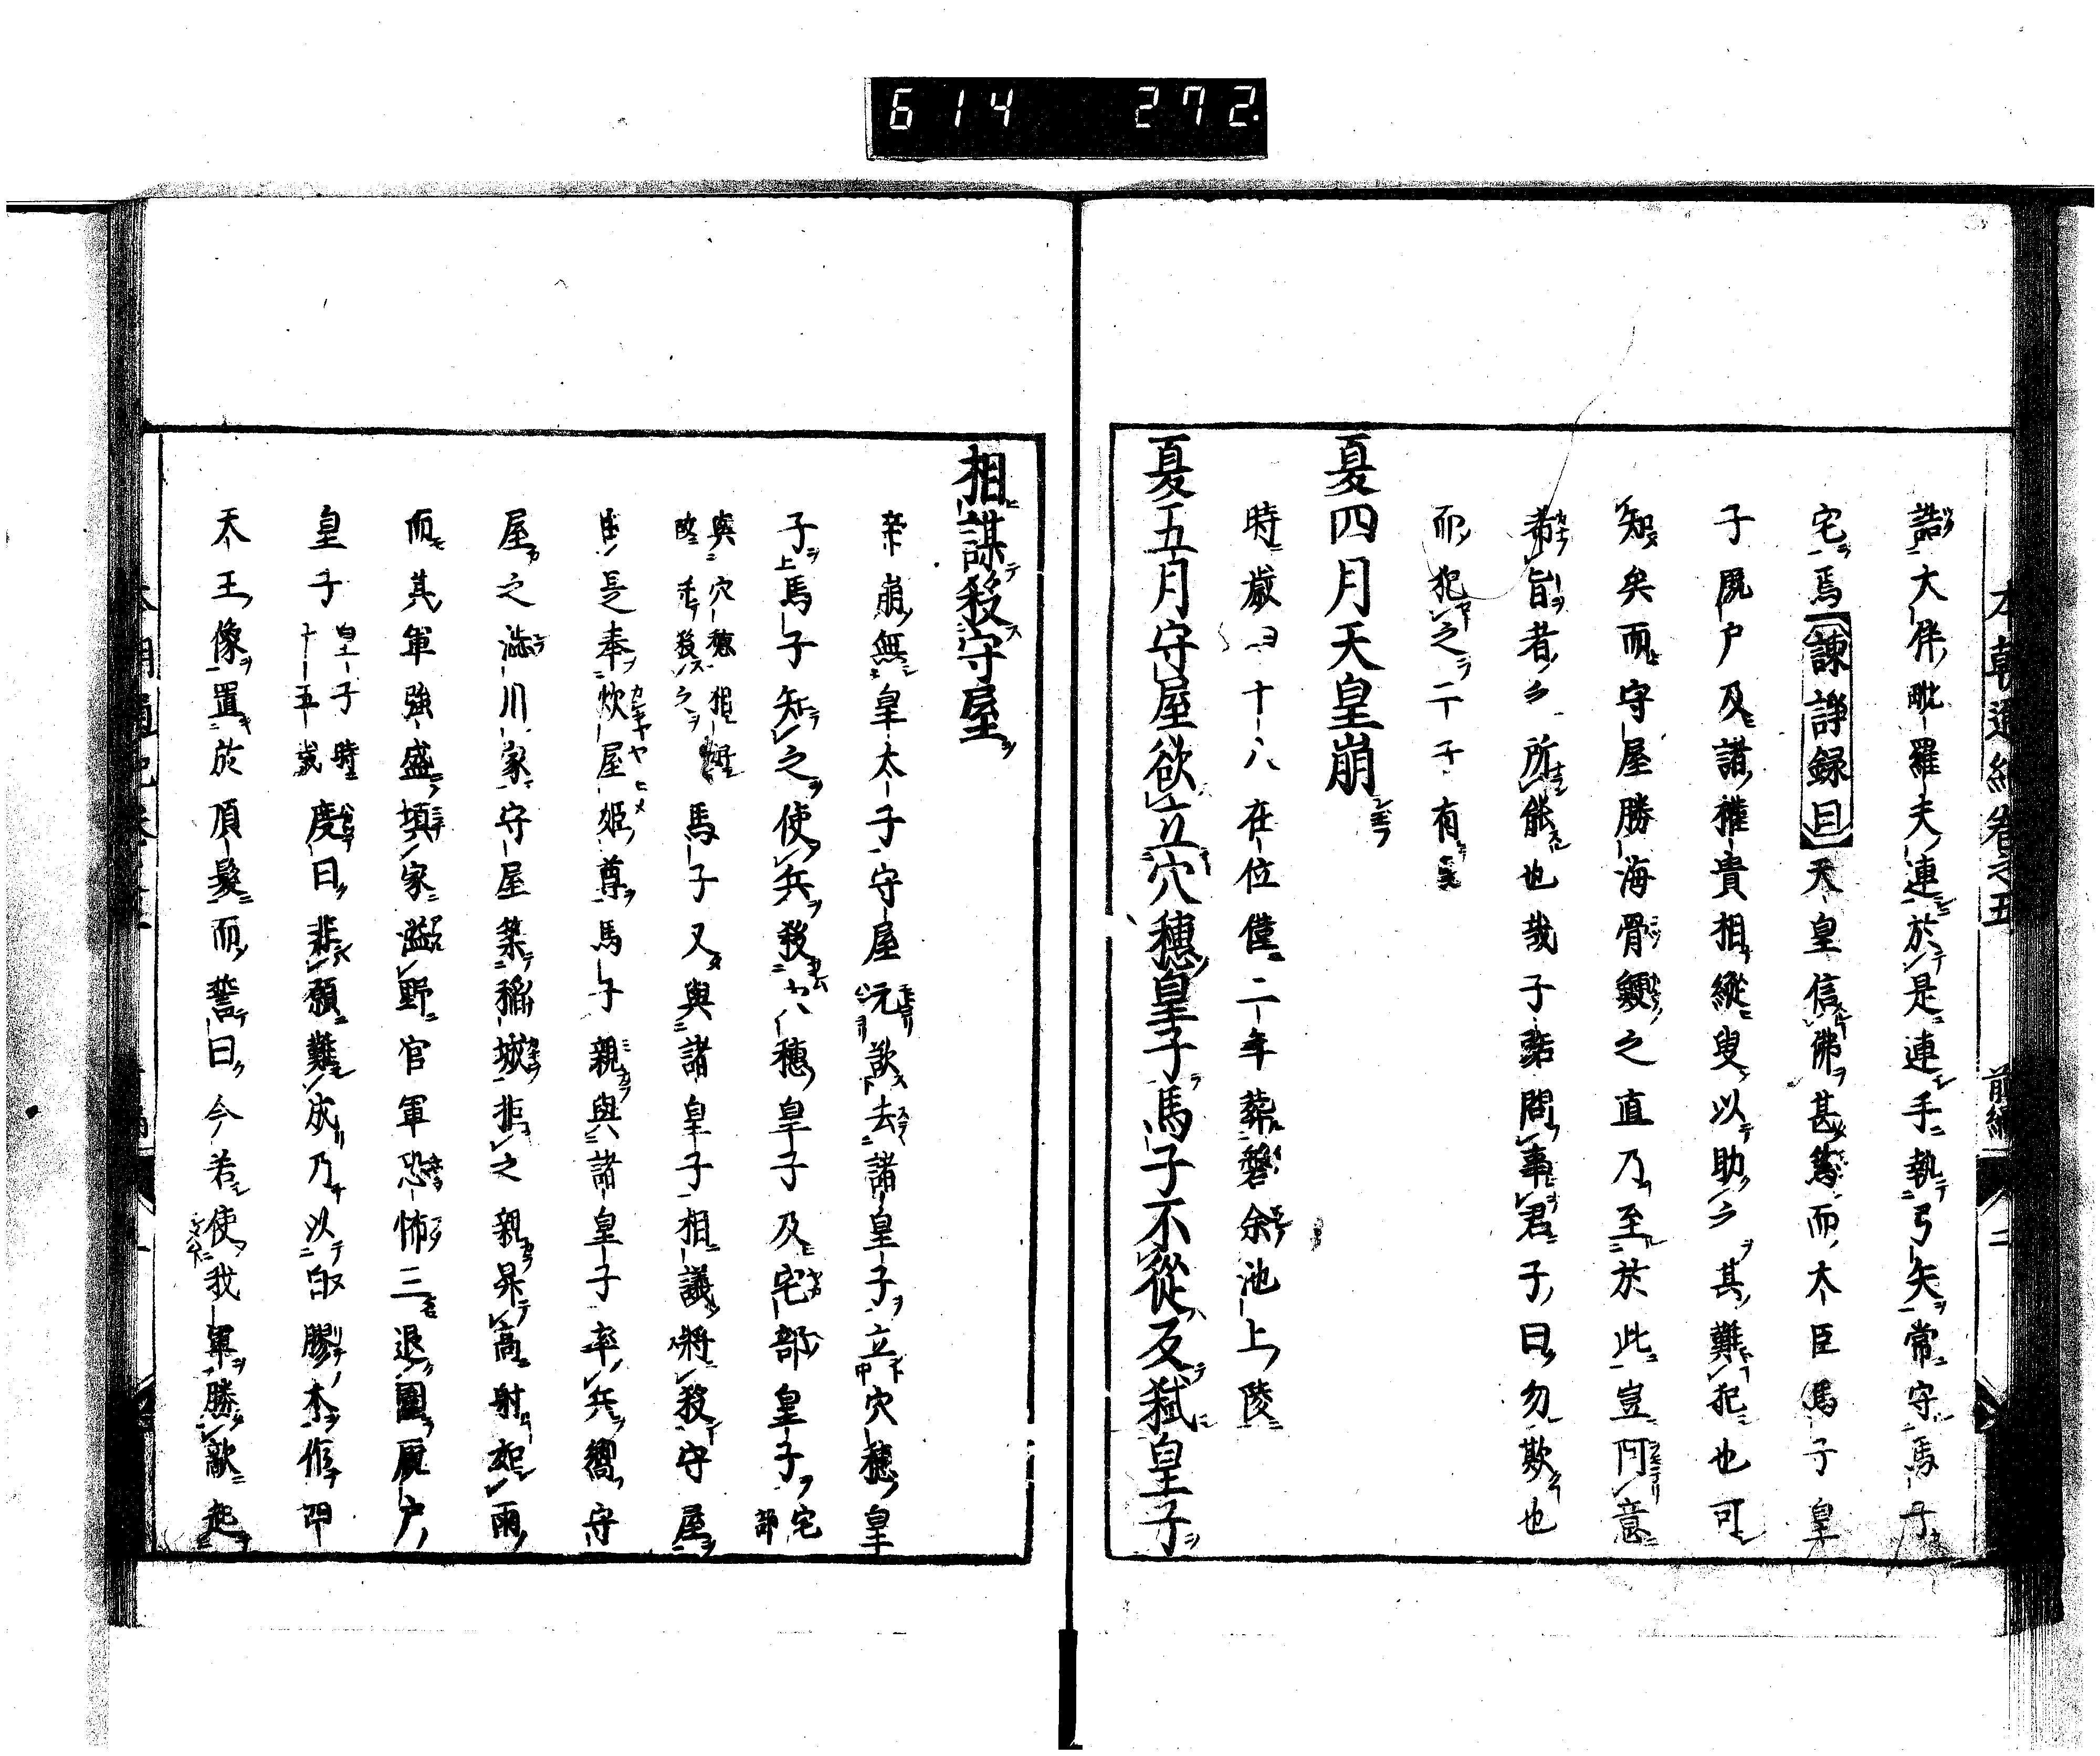 614 272
本朝通紀卷之五 前編 二
詣大伴毗羅夫連於是連手執弓矢常守馬子
宅焉【諫諍録曰】天皇信佛甚篤而大臣馬子皇
子厩戸及諸權貴相縱臾以助之其難犯也可
知矣而守屋勝海骨鯁之直乃至於此豈阿意
希旨者之所能也哉子路問事君子曰勿欺也
而犯之二子有焉
夏四月天皇崩
時歲四十八在位僅二年葬磐余池上陵
夏五月守屋欲立穴穗皇子馬子不從反弑皇子
相謀殺守屋
帝崩無皇太子守屋元欲去諸皇子立穴穗皇
子馬子知之使兵殺穴穗皇子及宅部皇子宅部
與穴穗相姪
故殺之馬子又與諸皇子相議將殺守屋
由是奉炊屋姬尊馬子親與諸皇子率兵嚮守
屋之澁川家守屋築稻城拒之親昇高射如雨
而其軍強盛填家溢野官軍恐怖三退圍厩戸
皇子皇子時
十五歲度曰非願難成乃以白膠木作四
天王像置於頂髮而誓曰今若使我軍勝敵起